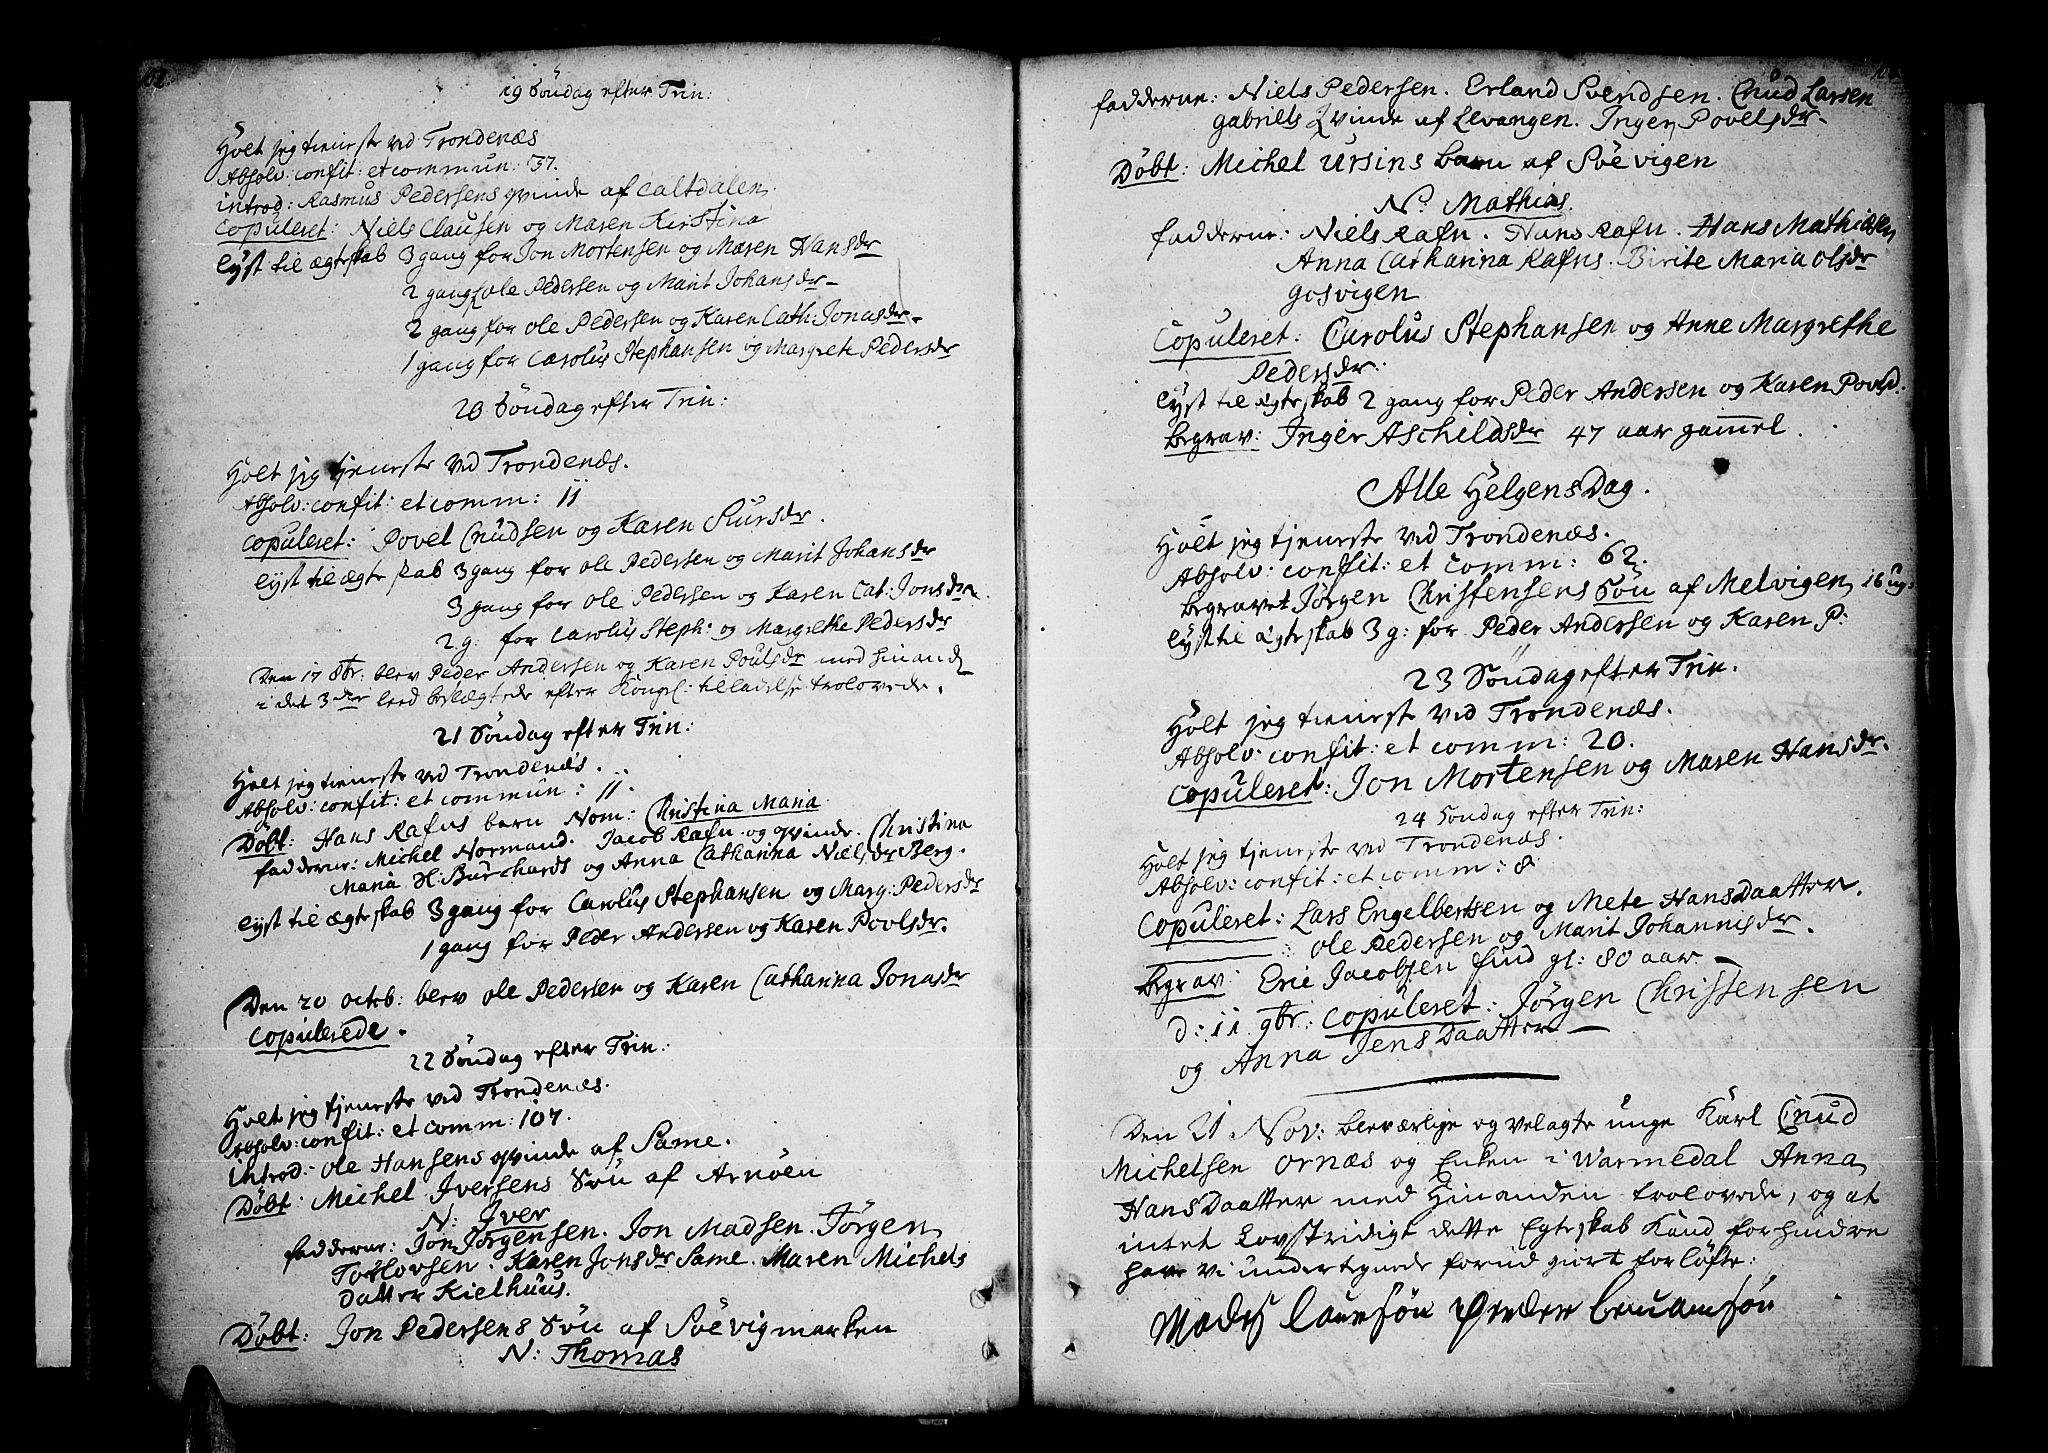 102.
19 Söndag efter Trin:
Holt jeg tieniste ved Trondenæs
Absolv: confit: et commun: 37.
introd: Rasmus Pedersens qvinde af Caltdalen
Copuleret: Niels Clausen og Maren Kirstina
lyst til ægteskab 3 gang for Jon Mortensen og Maren Hansdr
2 gang Ole Pedersen og Marit Johansdr
2 gang for Ole Pedersen og Karen Cath: Jonasdr.
1 gang for Carolus Stephansen og Margrete Pedersdr
20 Söndag efter Trin:
Holt jeg tjeneste ved Trondenæs.
Absolv: confit: et comm: 11
Copuleret: Povel Cnudsen og Karen Siursdr.
lyst til ægteskab 3 gang for Ole Pedersen og Marit Johansdr
3 gang for Ole Pedersen og Karen Cat: Jonsdr.
2 g: for Carolus Steph: og Margrethe Pedersdr
Den 17 8br: blev Peder Andersen og Karen Poulsdr med hinand
i det 3die leed beslægtede efter Kongel: tilladelse trolovede.
21 Söndag efter Trin:
Holt jeg tieneste ved Trondenæs.
Absolv: confit: et commun: 11.
Döbt: Hans Rafns barn Nom: Christina Maria
fadderne: Michel Normand. Jacob Rafn og qvinde. Christina
Maria H: Burchards og Anna Catharina Nielsdr Berg.
lyst til ægteskab 3 gang for Carolus Stephansen og Marg: Pedersdr
1 gang for Peder Andersen og Karen Povlsdr.
Den 20 octob: blev Ole Pedersen og Karen Catharina Jonasdr
copulerede.
22 Söndag efter Trin:
Holt jeg tjeneste ved Trondenæs.
Absolv: confit: et comm: 107.
introd: Ole Hansens qvinde af Same.
Döbt: Michel Iversens Sön af Arnöen
N: Iver
fadderne: Jon Jörgensen. Jon Madsen. Jörgen
Torlovsen. Karen Jonsdr Same. Maren Michels
datter Kielhuus.
Döbt: Jon Pedersens Sön af Söevigmarken
N: Thomas
fadderne: Niels Pedersen. Erland Svendsen. Cnud Larsen
gabriels Qvinde af Levangen. Inger Povelsdr
Döbt: Michel Ursins barn af Söevigen
N: Mathias.
fadderne: Niels Rafn. Hans Rafn. Hans Mathiesen
Anna Catharina Rafns. Birite Maria Olsdr
Gosvigen
Copuleret: Carolus Stephansen og Anne Margrethe
Pedersdr:
lyst til ægteskab 2 gang for Peder Andersen og Karen Povlsd.
begrav: Inger Aschildsdr 47 aar gamel.
Alle Helgens Dag.
Holt jeg tjeneste ved Trondenæs.
Absolv: confit: et comm: 62.
begravet Jörgen Christensens Sön af Melvigen 16 ug:
lyst til ægteskab 3 g: for Peder Andersen og Karen P:
23 Söndag efter Trin.
Holt jeg tieneste ved Trondenæs.
Absolv: confit: et comm: 20.
Copuleret: Jon Mortensen og Maren Hansdr.
24 Söndag efter Trin:
Holt jeg tjeneste ved Trondenæs.
Absolv: confit: et comm: 8
Copuleret: Lars Engelbertsen og Mete Hansdaatter.
Ole Pedersen og Marit Johannisdr.
begrav: Eric Jacobsen find gl: 80 aar
d: 11 9br: copuleret: Jörgen Christensen
og Anna Jensdaatter
Den 21 Nov: blev ærlige og velagte unge Karl Cnud
Michelsen Ornæs og Enken i Warmedal Anna
Hansdaatter med Hinanden trolovede, og at
intet Lovstridigt dette Egteskab Kand forhindre
have vi undertegnede forud giort forlöfte:
Mads Laursön Peder